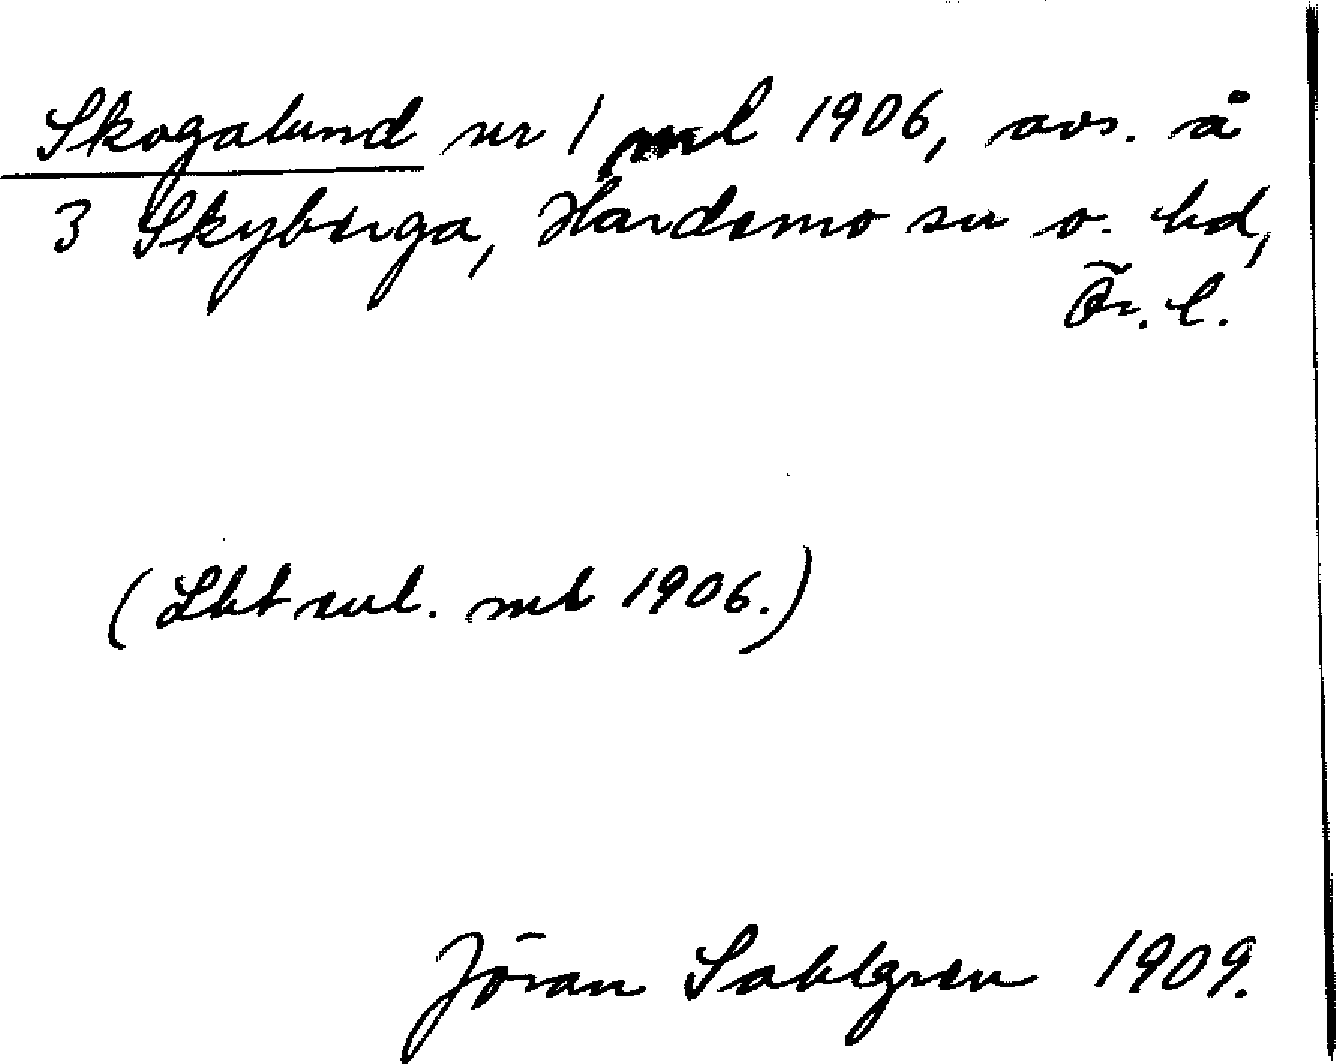 Skogalund nr 1 ml 1906, avs. å
3 Skyberga, Hardemo sn o. hd,
Ör. l.
(Lbt rul. ml 1906.)
Jöran Sahlgren 1909.